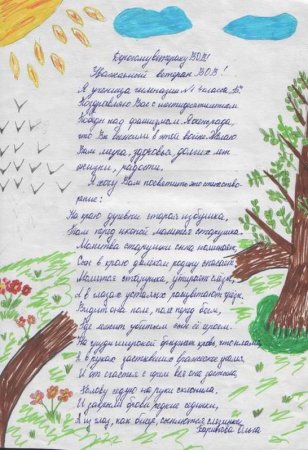 Дорогому ветерану ВОВ!
Уважаемый ветеран ВОВ!
Я ученица гимназии №1 4 класса "Б"
Поздравляю Вас с шестидесятилетием
Победы над фашизмом. Я рада,
что Вы в этой войне. Желаю
Вам мира, здоровья долгих лет
жизни, радости.
Я хочу Вам посвятить это стихотво-
рение:
На краю деревни старая избушка,
Там перед иконой молится старушка.
Молитва старушки сына поминает,
Сын в краю далёком родину спасает.
Молится старушка, утирает слёзы,
А в глазах усталых расцветают грёзы.
Видит она поле, поле перед боем,
Где лежит убитым сын её героем.
На груди широкой брызжет кровь, что пламя,
А в руках застывших вражеское знамя.
И от счастья с горем вся она застыла,
Голову седую на руки склонила,
И закрыли брови редкие сединки,
А из глаз, как бисер, сыплются слезинки.
Ольга